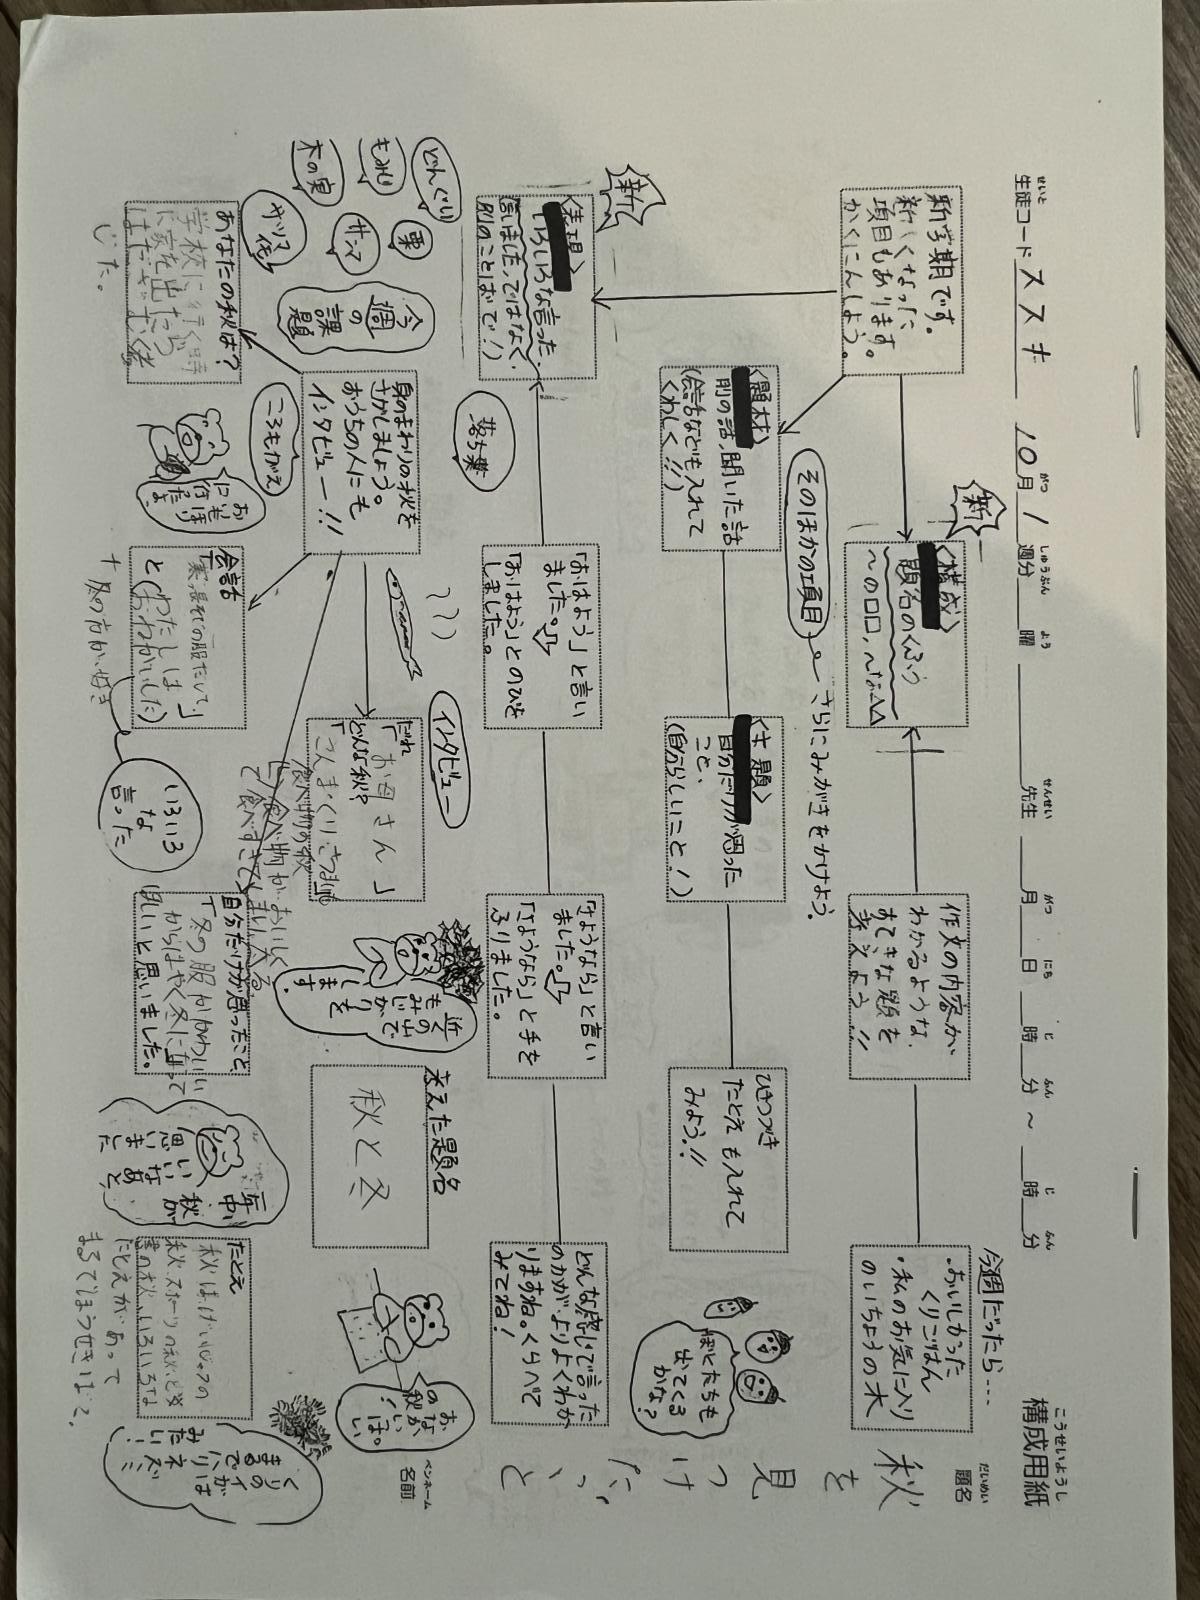 構成用紙
こうせいようし
生徒コード ススキ 10月 1 週分 曜 先生 月 日 時 分 ～ 時 分
せいと がつ しゅうぶん よう せんせい がつ にち じ ふん じ ふん
題名
だいめい
秋を見つけたよ、と
ペンネーム
名前
新学期です。
新しくなった
項目もあります。
かくにんしよう。
新
〈構成〉
題名のくふう
～の口口、～な△△
作文の内容が
わかるような
すてきな題を
考えよう!!
今週だったら…
・おいしかった
くりごはん
・私のお気に入り
のいちょうの木
そのほかの項目
さらにみがきをかけよう。
〈題材〉
前の話、聞いた話
(会話なども入れて
くわしく!!)
〈主題〉
自分だけが思った
こと、
(自分らしいこと！)
ひきつづき
たとえも入れて
みよう!!
ぼくたちも
出てくる
かな？
新
〈表現〉
いろいろな言った、
言いました、ではなく、
別のことばで！)
「おはよう」と言い
ました。
「おはよう」とのびを
しました。
「さようなら」と言い
ました。
「さようなら」と手を
ふりました。
どんな感じで言った
のかが、よりよくわか
りますね。くらべて
みてね！
どんぐり
もみじ
木の実
栗
サンマ
サツマイモ
今週の課題
落ち葉
身のまわりの秋を
さがしましょう。
おうちの人にも
インタビュー!!
インタビュー
だれ
「お母さん」
どんな秋？
「さんま・くり・さつまいも
食べ物の秋
「食べ物がおいしく
て食べすぎてしまいそう。
近くの山で
もみじがりを
します。
考えた題名
秋と冬
おなかいっぱい。
の秋！
あなたの秋は？
学校に行く時
に家を出たら
じた。
ころもがえ
おいも
ほり
行った
よ
会話
「実は長そでの服だして。」
とわたしは
(おねがいした)
冬の方が好き
いろいろ
な
言った
自分だけが思ったこと
「冬の服がかわいい
からはやく冬になって
ほしいと思いました。
年中
秋が
いいなあと
思いました
たとえ
秋はげいじゅつの
秋、スポーツの秋、ど
書の秋、いろいろな
たとえがあって
まるでほうせきばこ。
くりのイガは
まるでハリネズミ
みたい！